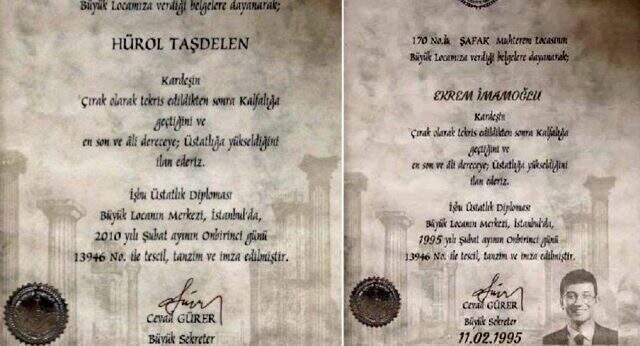 Büyük Locamıza verdiği belgelere dayanarak;
HÜROL TAŞDELEN
Kardeşin
Çırak olarak tekris edildikten sonra Kalfalığa
geçtiğini ve
en son ve âli dereceye; Üstatlığa yükseldiğini
ilan ederiz.
İşbu Üstatlık Diploması
Büyük Locanın Merkezi, İstanbul'da,
2010 yılı Şubat ayının Onbirinci günü
13946 No. ile tescil, tanzim ve imza edilmiştir.
Cevad GÜRER
Büyük Sekreter
170 No.lı ŞAFAK Muhterem Locasının
Büyük Locamıza verdiği belgelere dayanarak;
EKREM İMAMOĞLU
Kardeşin
Çırak olarak tekris edildikten sonra Kalfalığa
geçtiğini ve
en son ve âli dereceye; Üstatlığa yükseldiğini
ilan ederiz.
İşbu Üstatlık Diploması
Büyük Locanın Merkezi, İstanbul'da,
1995 yılı Şubat ayının Onbirinci günü
13946 No. ile tescil, tanzim ve imza edilmiştir.
Cevad GÜRER
Büyük Sekreter
11.02.1995